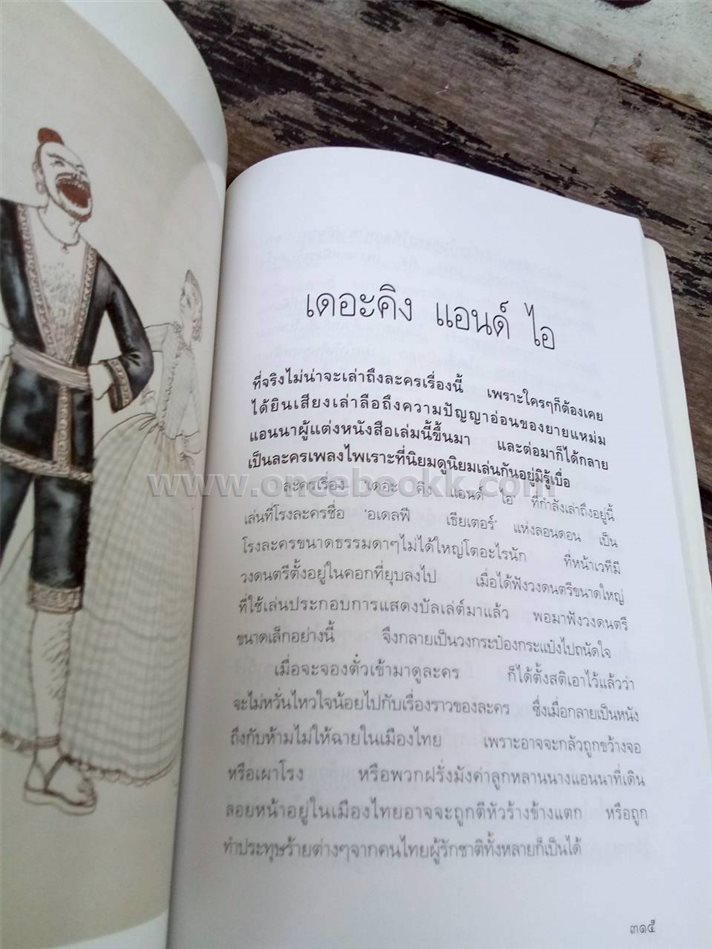 เดอะคิง แอนด์ ไอ
ที่จริงไม่น่าจะเล่าถึงละครเรื่องนี้ เพราะใครๆก็ต้องเคย
ได้ยินเสียงเล่าลือถึงความปัญญาอ่อนของยายแหม่ม
แอนนาผู้แต่งหนังสือเล่มนี้ขึ้นมา และต่อมาก็ได้กลาย
เป็นละครเพลงไพเราะที่นิยมดูนิยมเล่นกันอยู่มิรู้เบื่อ
www.oncebookk.com
ละครเรื่อง 'เดอะ คิง แอนด์ ไอ' ที่กำลังเล่าถึงอยู่นี้
เล่นที่โรงละครชื่อ 'อเดลฟี เธียเตอร์' แห่งลอนดอน เป็น
โรงละครขนาดธรรมดาๆไม่ได้ใหญ่โตอะไรนัก ที่หน้าเวทีมี
วงดนตรีตั้งอยู่ในคอกที่ยุบลงไป เมื่อได้ฟังวงดนตรีขนาดใหญ่
ที่ใช้เล่นประกอบการแสดงบัลเล่ต์มาแล้ว พอมาฟังวงดนตรี
ขนาดเล็กอย่างนี้ จึงกลายเป็นวงกระป๋องกระแป๋งไปถนัดใจ
เมื่อจะจองตั๋วเข้ามาดูละคร ก็ได้ตั้งสติเอาไว้แล้วว่า
จะไม่หวั่นไหวใจน้อยไปกับเรื่องราวของละคร ซึ่งเมื่อกลายเป็นหนัง
ถึงกับห้ามไม่ให้ฉายในเมืองไทย เพราะอาจจะกลัวถูกขว้างจอ
หรือเผาโรง หรือพวกฝรั่งมังค่าลูกหลานนางแอนนาที่เดิน
ลอยหน้าอยู่ในเมืองไทยอาจจะถูกตีหัวร้างข้างแตก หรือถูก
ทำประทุษร้ายต่างๆจากคนไทยผู้รักชาติทั้งหลายก็เป็นได้
๓๑๕